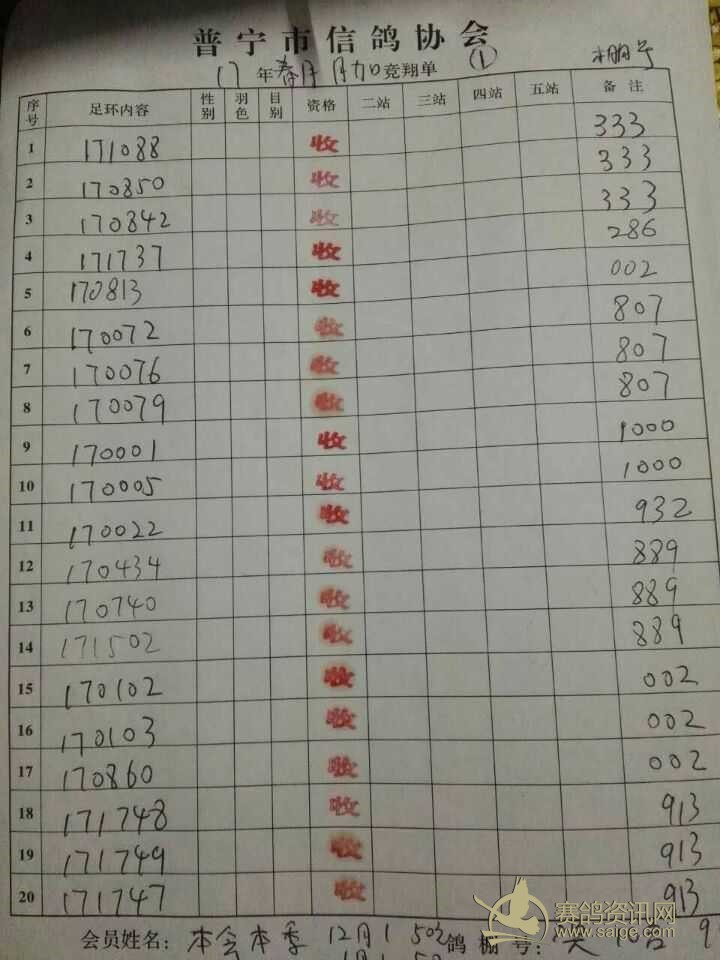 普宁市信鸽协会
17年春月加竞翔单 ① 棚号
序号 足环内容 性别 羽色 目别 资格 二站 三站 四站 五站 备注
1 171088 收 333
2 170850 收 333
3 170842 收 333
4 171737 收 286
5 170813 收 002
6 170072 收 807
7 170076 收 807
8 170079 收 807
9 170001 收 1000
10 170005 收 1000
11 170022 收 932
12 170434 收 889
13 170740 收 889
14 171502 收 889
15 170102 收 002
16 170103 收 002
17 170860 收 002
18 171748 收 913
19 171749 收 913
20 171747 收 913
会员姓名：本会本季 12月1 鸽棚号：
赛鸽资讯网
www.saige.com